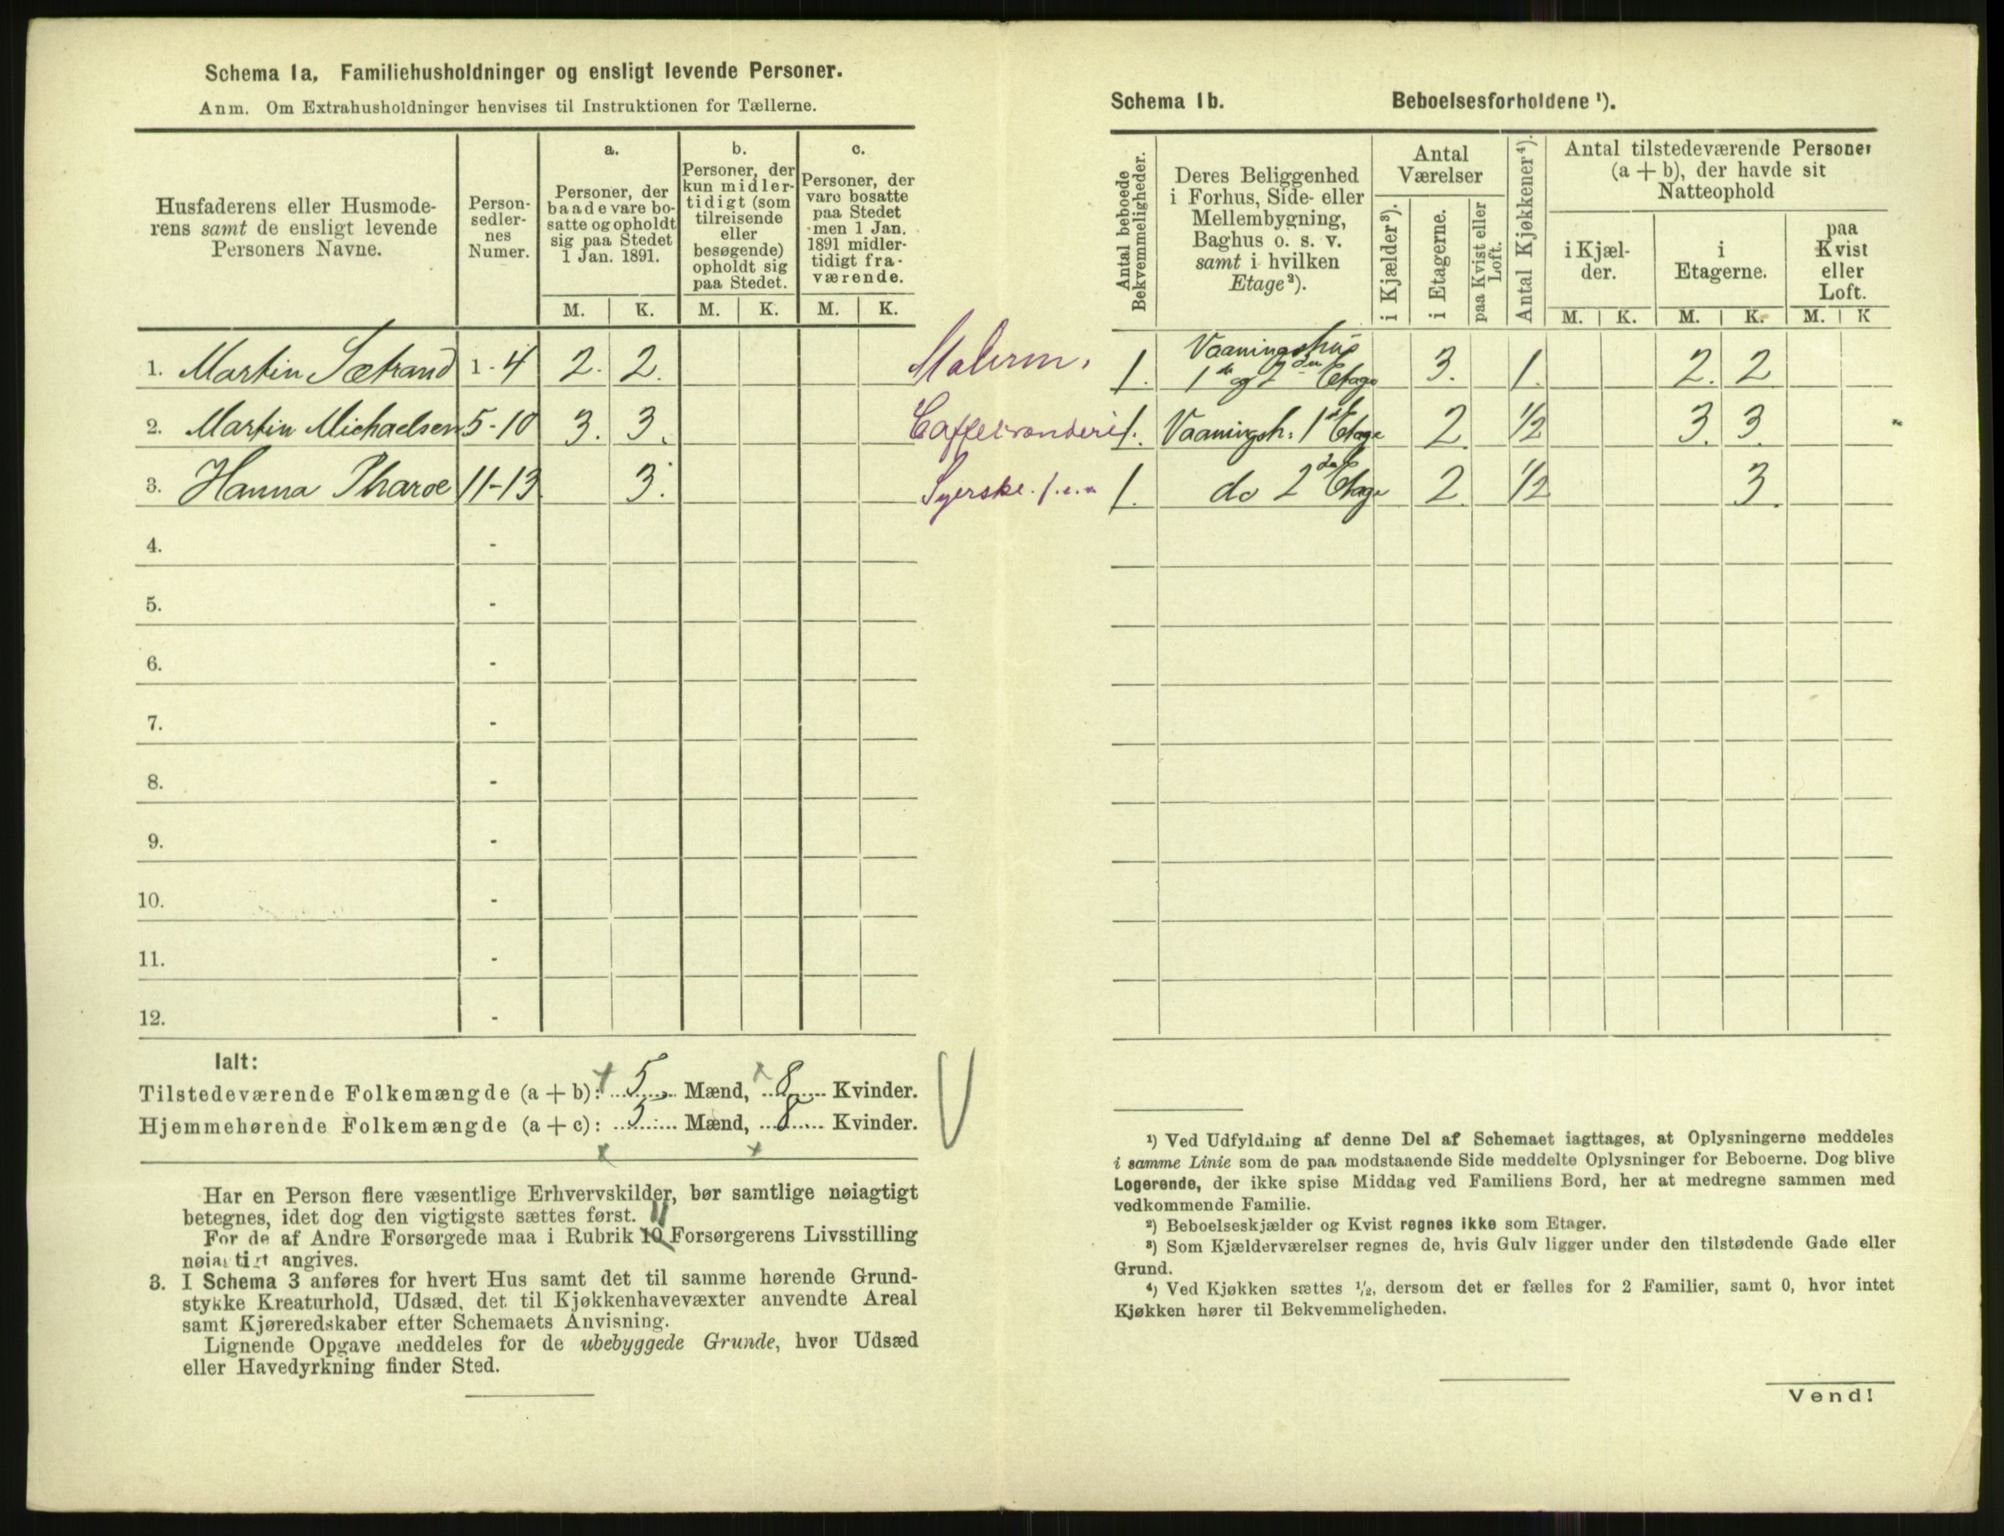 Schema 1a, Familiehusholdninger og ensligt levende Personer.
Anm. Om Extrahusholdninger henvises til Instruktionen for Tællerne.
Husfaderens eller Husmode-
rens samt de ensligt levende
Personers Navne.
Person-
sedler-
nes
Numer.
a.
Personer, der
baade vare bo-
satte og opholdt
sig paa Stedet
1 Jan. 1891.
b.
Personer, der
kun midler-
tidigt (som
tilreisende
eller
besøgende)
opholdt sig
paa Stedet.
c.
Personer, der
vare bosatte
paa Stedet
men 1 Jan.
1891 midler-
tidigt fra-
værende.
M. K. M. K. M. K.
1. Martin Sætrand 1-4 2. 2.
2. Martin Michaelsen 5-10 3. 3.
3. Hanna Pharoe 11-13 3.
4. -
5. -
6. -
7. -
8. -
9. -
10. -
11. -
12. -
Ialt:
Tilstedeværende Folkemængde (a + b): 5 Mænd, 8 Kvinder.
Hjemmehørende Folkemængde (a + c): 5 Mænd, 8 Kvinder.
Har en Person flere væsentlige Erhvervskilder, bør samtlige nøiagtigt
betegnes, idet dog den vigtigste sættes først.
For de af Andre Forsørgede maa i Rubrik 10 11 Forsørgerens Livsstilling
nøiagtigt angives.
3. I Schema 3 anføres for hvert Hus samt det til samme hørende Grund-
stykke Kreaturhold, Udsæd, det til Kjøkkenhavevæxter anvendte Areal
samt Kjøreredskaber efter Schemaets Anvisning.
Lignende Opgave meddeles for de ubebyggede Grunde, hvor Udsæd
eller Havedyrkning finder Sted.
Schema 1b. Beboelsesforholdene ¹).
Antal beboede
Bekvemmeligheder.
Deres Beliggenhed
i Forhus, Side- eller
Mellembygning,
Baghus o. s. v.
samt i hvilken
Etage²).
Antal
Værelser
i Kjælder³).
i Etagerne.
paa Kvist eller
Loft.
Antal Kjøkkener⁴).
Antal tilstedeværende Personer
(a + b), der havde sit
Natteophold
i Kjæl-
der.
i
Etagerne.
paa
Kvist
eller
Loft.
M. K. M. K. M. K
Malerm. 1. Vaaningshus
1ste og 2den Etage 3. 1. 2. 2
1. Vaaningsh. 1ste Etage 2 1/2 3. 3.
Syerske 1. do 2den Etage 2 1/2 3.
¹) Ved Udfyldning af denne Del af Schemaet iagttages, at Oplysningerne meddeles
i samme Linie som de paa modstaaende Side meddelte Oplysninger for Beboerne. Dog blive
Logerende, der ikke spise Middag ved Familiens Bord, her at medregne sammen med
vedkommende Familie.
²) Beboelseskjælder og Kvist regnes ikke som Etager.
³) Som Kjælderværelser regnes de, hvis Gulv ligger under den tilstødende Gade eller
Grund.
⁴) Ved Kjøkken sættes ½, dersom det er fælles for 2 Familier, samt 0, hvor intet
Kjøkken hører til Bekvemmeligheden.
Vend!